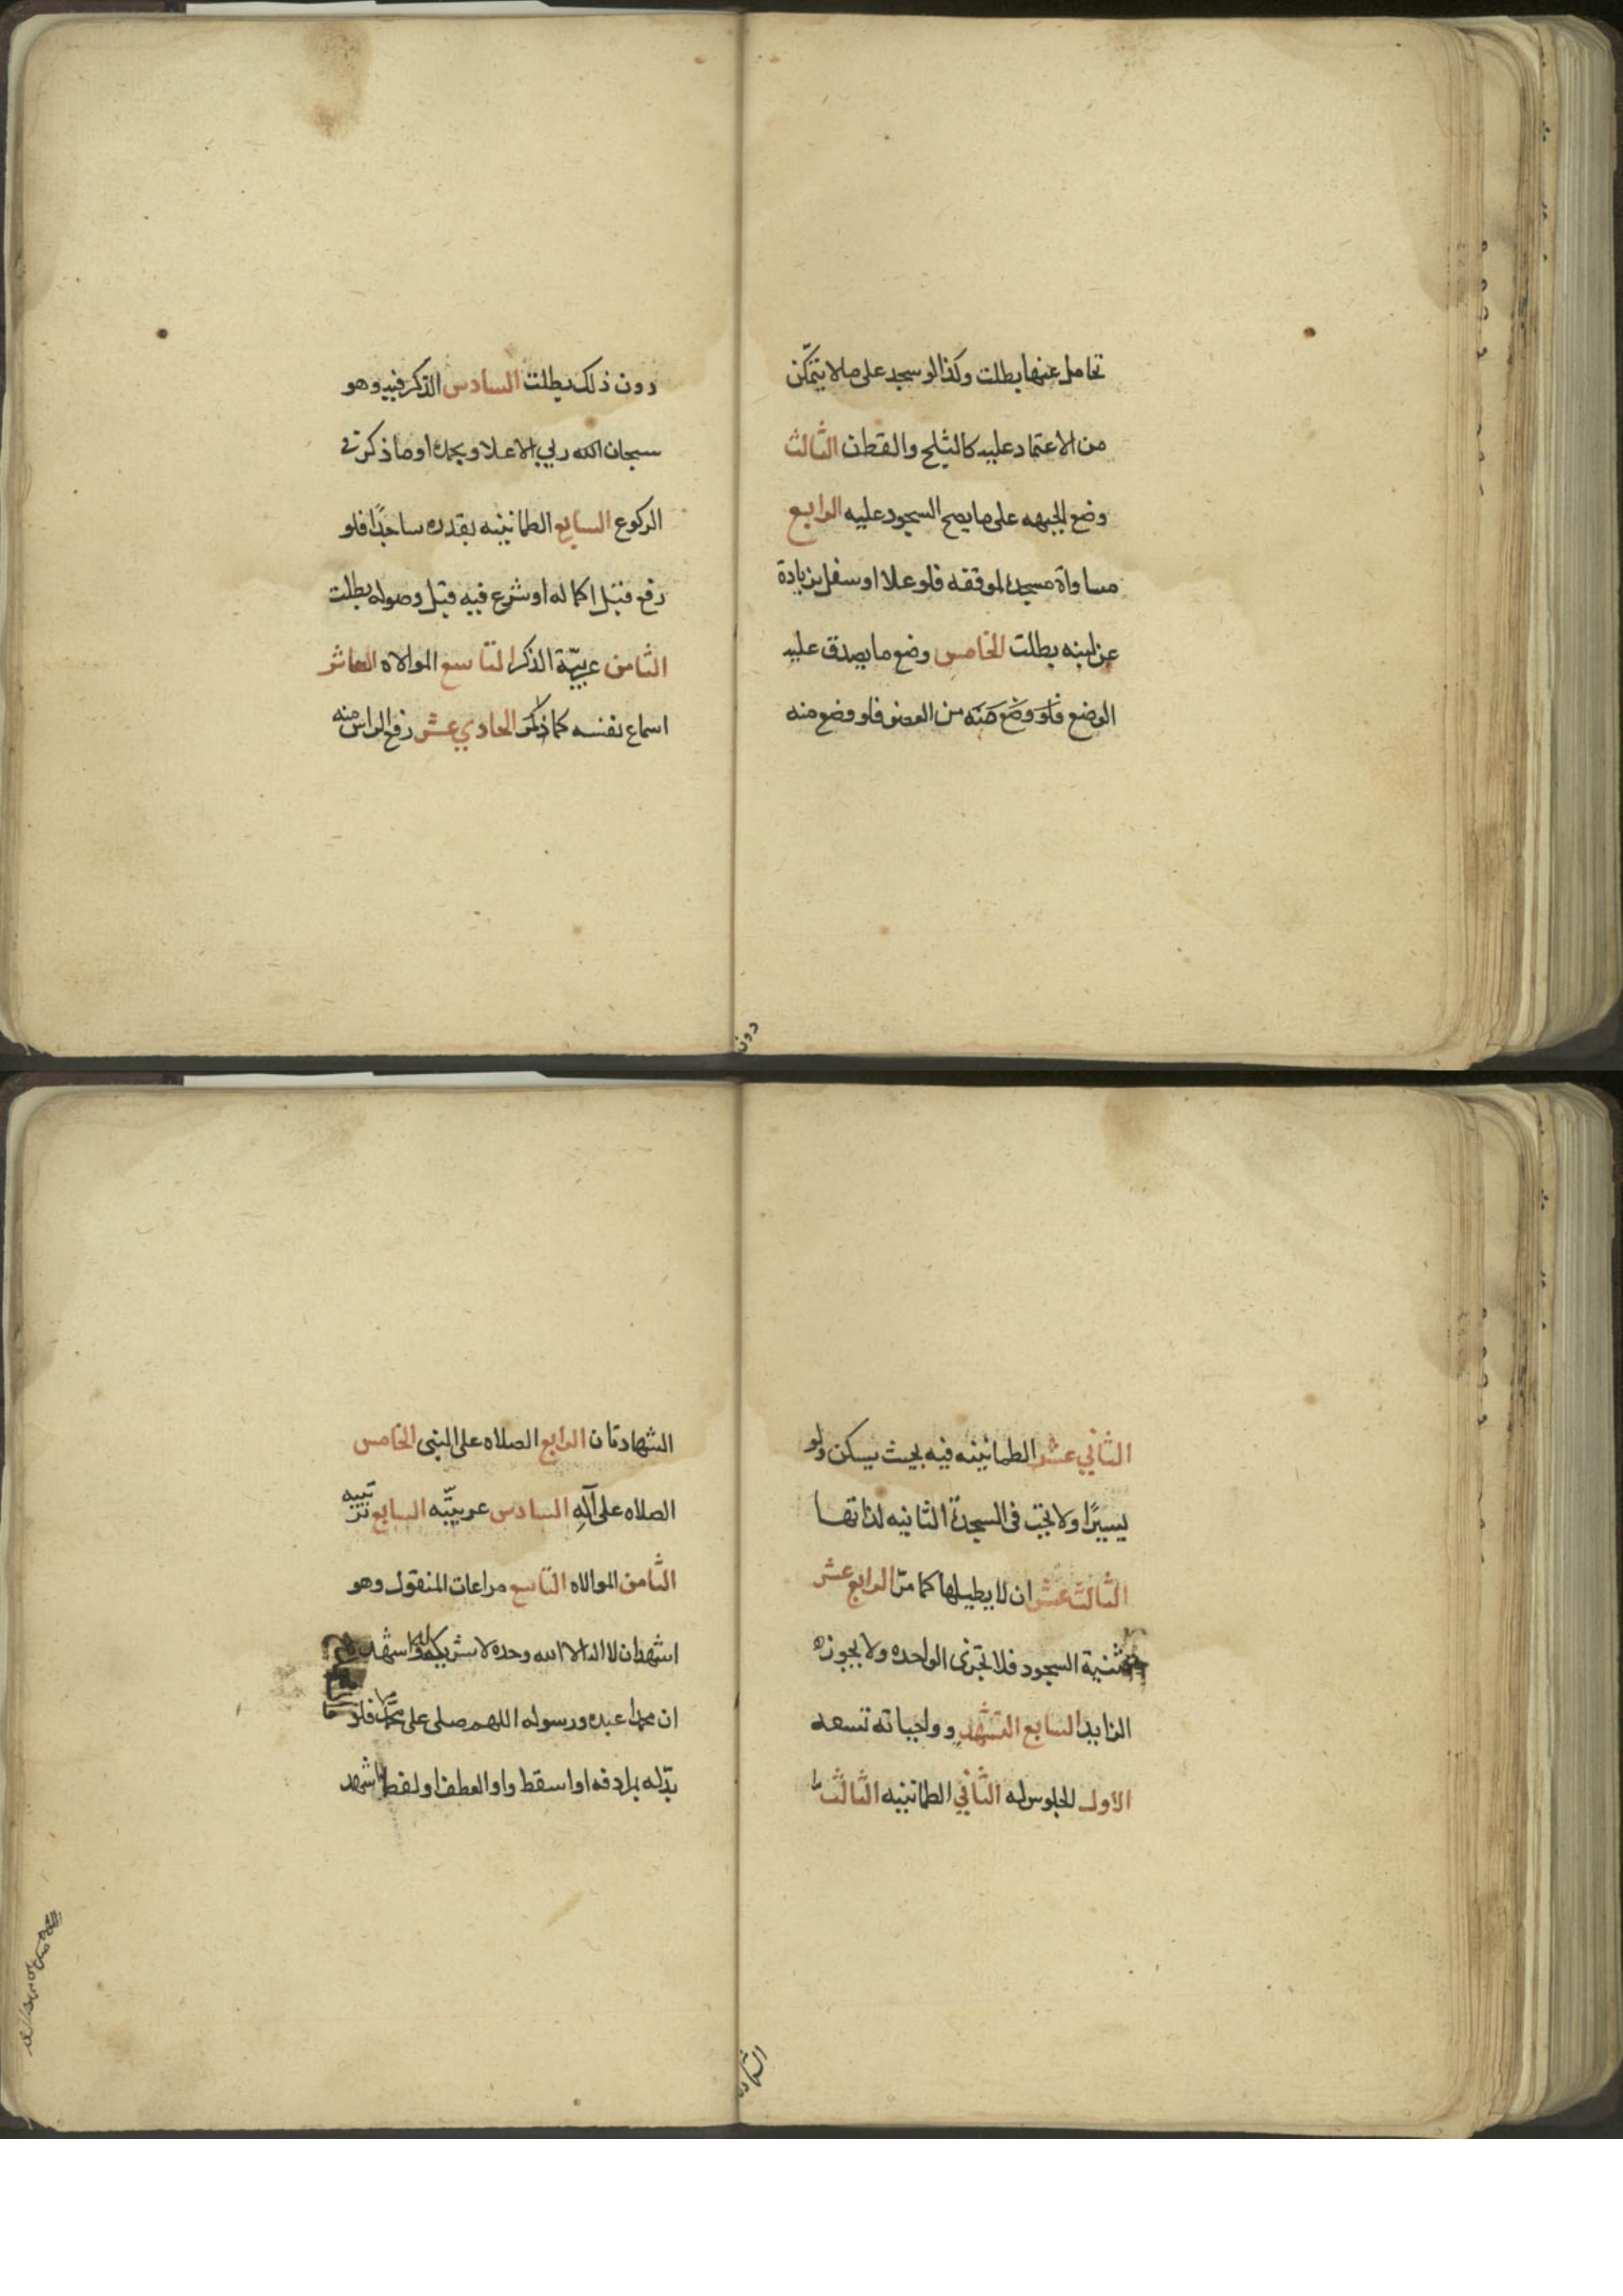 تحامل عنها بطلت وكذا لو سجد على ما لا يتمكّن
من الاعتماد عليه كالثلج والقطن الثالث
وضع الجبهه على ما يصح السجود عليه الرابع
مساواة مسجده لموقفه فلو علا او سفل بزيادة
عن لبنه بطلت الخامس وضع ما يصدق عليه
الوضع فلو وضع منه من العضو فلو وضع منه
دون
دون ذلك بطلت السادس الذكر فيه وهو
سبحان الله ربي الاعلا وبحمده او ما ذكر في
الركوع السابع الطمانينه بقدره ساجدًا فلو
رفع قبل اكماله او شرع فيه قبل وصوله بطلت
الثامن عربيّة الذكر التاسع الموالاه العاشر
اسماع نفسه كما ذكر الحادي عشر رفع الراس منه
الثاني عشر الطمانينه فيه بحيث يسكن ولو
يسيرًا ولا تجب في السجدة الثانيه لذاتها
الثالث عشر ان لا يطيلها كما مرّ الرابع عشر
تثنية السجود فلا تجزى الواحده ولا يجوز
الزايد السابع التشهد وواجباته تسعه
الاول الجلوس له الثاني الطمانينه الثالث
الشهادتان
الشهادتان الرابع الصلاه على النبى الخامس
الصلاه على آله السادس عربيّته السابع ترتيبه
الثامن الموالاه التاسع مراعات المنقول وهو
اشهد ان لا اله الا الله وحده لا شريك له واشهد
ان محمدا عبده ورسوله اللهم صلى على محمد فلو
بدّله بمرادفه او اسقط واو العطف او لفظ اشهد